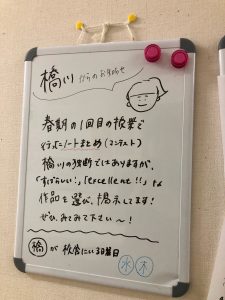 橋川からのお知らせ
春期の1回目の授業で
行ったノートまとめ(コンテスト)
橋川の独断ではありますが、
「すばらしい!」「excellent!!」な
作品を選び、掲示してます!
ぜひ、みてみて下さい〜!
橋が校舎にいる曜日
水 木